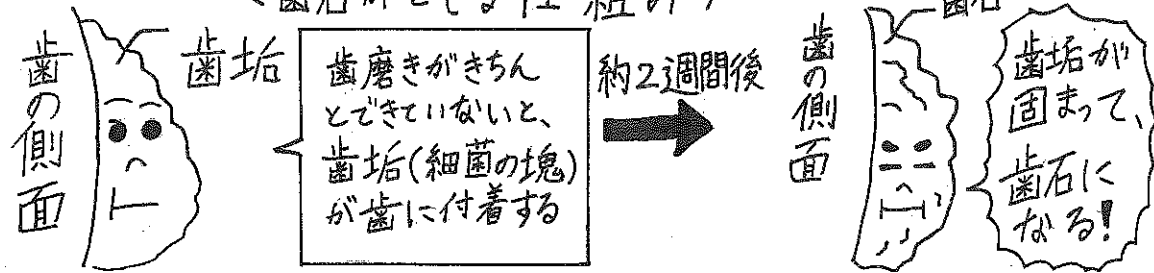 歯石ができる仕組み
歯の側面
歯垢
歯磨きがきちん
とできていないと、
歯垢(細菌の塊)
が歯に付着する
約2週間後
歯の側面
歯石
歯垢が
固まって、
歯石に
なる!